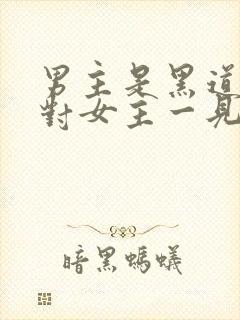 男主是黑道
對女主一見
暗黑螞蟻